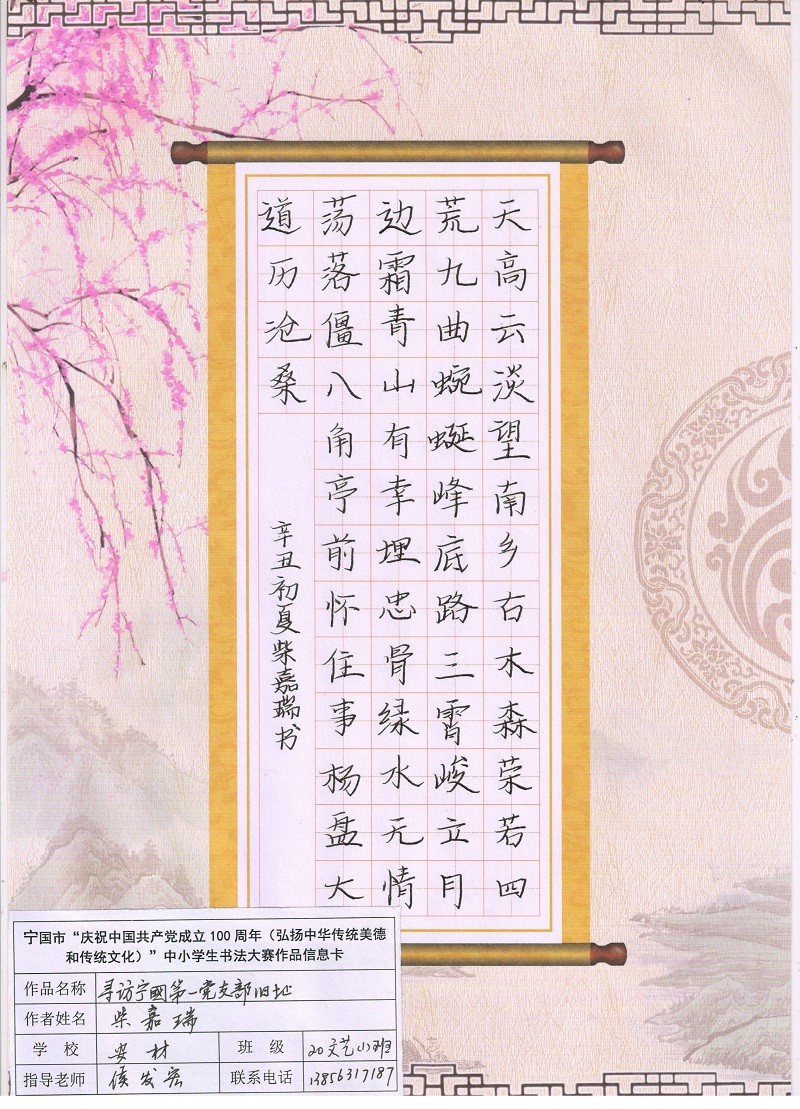 天高云淡望南乡古木森荣若四
荒九曲蜿蜒峰底路三霄峻立月
边霜青山有幸埋忠骨绿水无情
荡落僵八角亭前怀住事杨盘大
道历沧桑
辛丑初夏柴嘉瑞书
宁国市“庆祝中国共产党成立100周年（弘扬中华传统美德
和传统文化）”中小学生书法大赛作品信息卡
作品名称 寻访宁國第一党支部旧址
作者姓名 柴嘉瑞
学校 安材 班级 20文艺小班
指导老师 侯发宏 联系电话 13856317187